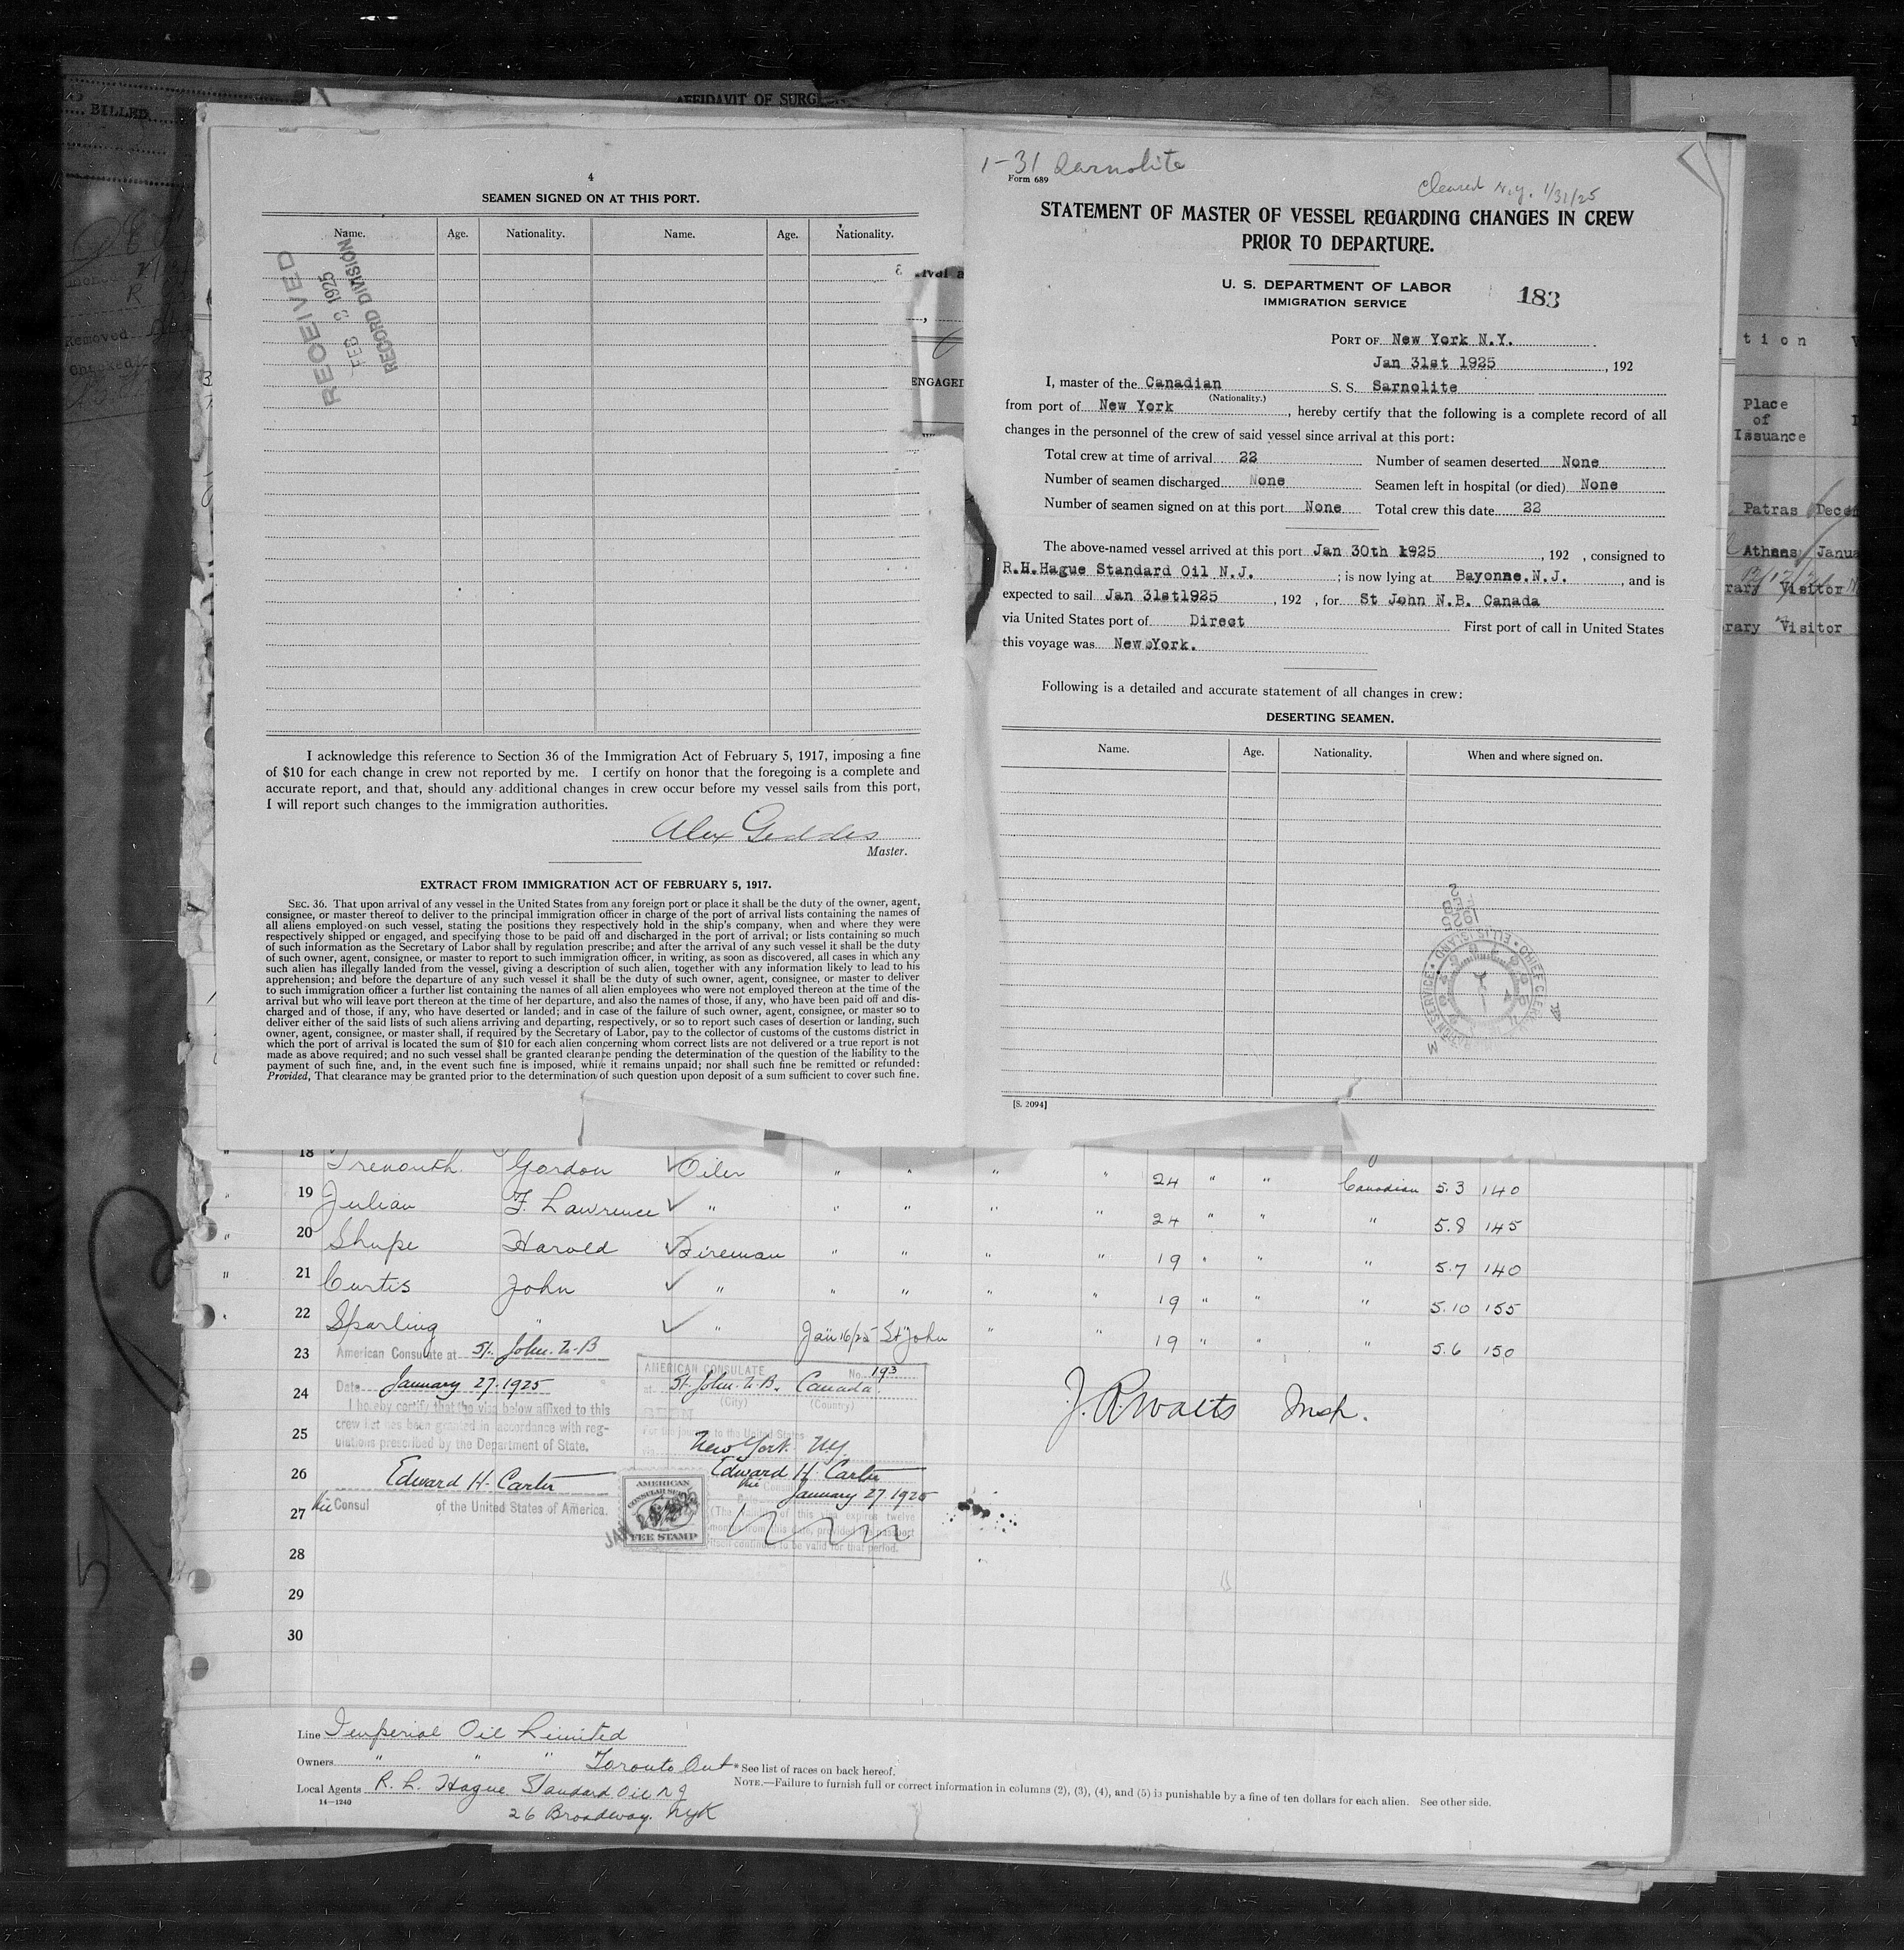 BILLED
AFFIDAVIT OF
4
SEAMEN SIGNED ON AT THIS PORT.
Name. Age. Nationality. Name. Age. Nationality.
RECEIVED
FEB 3 1925
RECORD DIVISION
I acknowledge this reference to Section 36 of the Immigration Act of February 5, 1917, imposing a fine
of $10 for each change in crew not reported by me. I certify on honor that the foregoing is a complete and
accurate report, and that, should any additional changes in crew occur before my vessel sails from this port,
I will report such changes to the immigration authorities.
Alex Geddes
Master.
EXTRACT FROM IMMIGRATION ACT OF FEBRUARY 5, 1917.
SEC. 36. That upon arrival of any vessel in the United States from any foreign port or place it shall be the duty of the owner, agent,
consignee, or master thereof to deliver to the principal immigration officer in charge of the port of arrival lists containing the names of
all aliens employed on such vessel, stating the positions they respectively hold in the ship's company, when and where they were
respectively shipped or engaged, and specifying those to be paid off and discharged in the port of arrival; or lists containing so much
of such information as the Secretary of Labor shall by regulation prescribe; and after the arrival of any such vessel it shall be the duty
of such owner, agent, consignee, or master to report to such immigration officer, in writing, as soon as discovered, all cases in which any
such alien has illegally landed from the vessel, giving a description of such alien, together with any information likely to lead to his
apprehension; and before the departure of any such vessel it shall be the duty of such owner, agent, consignee, or master to deliver
to such immigration officer a further list containing the names of all alien employees who were not employed thereon at the time of the
arrival but who will leave port thereon at the time of her departure, and also the names of those, if any, who have been paid off and dis-
charged and of those, if any, who have deserted or landed; and in case of the failure of such owner, agent, consignee, or master so to
deliver either of the said lists of such aliens arriving and departing, respectively, or so to report such cases of desertion or landing, such
owner, agent, consignee, or master shall, if required by the Secretary of Labor, pay to the collector of customs of the customs district in
which the port of arrival is located the sum of $10 for each alien concerning whom correct lists are not delivered or a true report is not
made as above required; and no such vessel shall be granted clearance pending the determination of the question of the liability to the
payment of such fine, and, in the event such fine is imposed, while it remains unpaid; nor shall such fine be remitted or refunded:
Provided, That clearance may be granted prior to the determination of such question upon deposit of a sum sufficient to cover such fine.
1-31 Sarnolite
Form 689
Cleared N.Y. 1/31/25
STATEMENT OF MASTER OF VESSEL REGARDING CHANGES IN CREW
PRIOR TO DEPARTURE.
U. S. DEPARTMENT OF LABOR
IMMIGRATION SERVICE
183
PORT OF New York N.Y.
Jan 31st 1925, 192
I, master of the Canadian S. S. Sarnolite
(Nationality.)
from port of New York, hereby certify that the following is a complete record of all
changes in the personnel of the crew of said vessel since arrival at this port:
Total crew at time of arrival 22 Number of seamen deserted None
Number of seamen discharged None Seamen left in hospital (or died) None
Number of seamen signed on at this port None Total crew this date 22
The above-named vessel arrived at this port Jan 30th 1925, 192 , consigned to
R.H.Hague Standard Oil N.J. ; is now lying at Bayonne.N.J. , and is
expected to sail Jan 31st1925 , 192 , for St John N.B. Canada
via United States port of Direct First port of call in United States
this voyage was New York.
Following is a detailed and accurate statement of all changes in crew:
DESERTING SEAMEN.
Name. Age. Nationality. When and where signed on.
[S. 2094]
ENGAGED
Removed
Checked
tion
Place
of
Issuance
Patras
Athens
Visitor
Visitor
18 Tremouth Gordon Oiler " " " " 24 " " Canadian 5.3 140
19 Julian F. Lawrence " " " " " 24 " " " 5.8 145
20 Shupe Harold Fireman " " " " 19 " " " 5.7 140
21 Curtis John " " " " " 19 " " " 5.10 155
22 Sparling " " Jan 16/25 St John " " 19 " " 5.6 150
23 American Consulate at St. John. N.B
Date January 27. 1925
I hereby certify that the visa below affixed to this
crew list has been granted in accordance with reg-
ulations prescribed by the Department of State.
Edward H. Carter
Vice Consul of the United States of America.
AMERICAN CONSULATE No. 193
at St. John. N.B. Canada.
(City) (Country)
SEEN
For the journey to the United States
via New York N.Y.
Edward H. Carter
Vice Consul
January 27 1925
(The validity of this visa expires twelve
months from this date, provided the passport
itself continues to be valid for that period.
AMERICAN
CONSULAR SERVICE
FEE STAMP
J. R. Walts Insp.
24
25
26
27
28
29
30
Line Imperial Oil Limited
Owners " " " Toronto Ont
* See list of races on back hereof.
Local Agents R. L. Hague Standard Oil N J
NOTE.—Failure to furnish full or correct information in columns (2), (3), (4), and (5) is punishable by a fine of ten dollars for each alien. See other side.
14—1240
26 Broadway. NYK